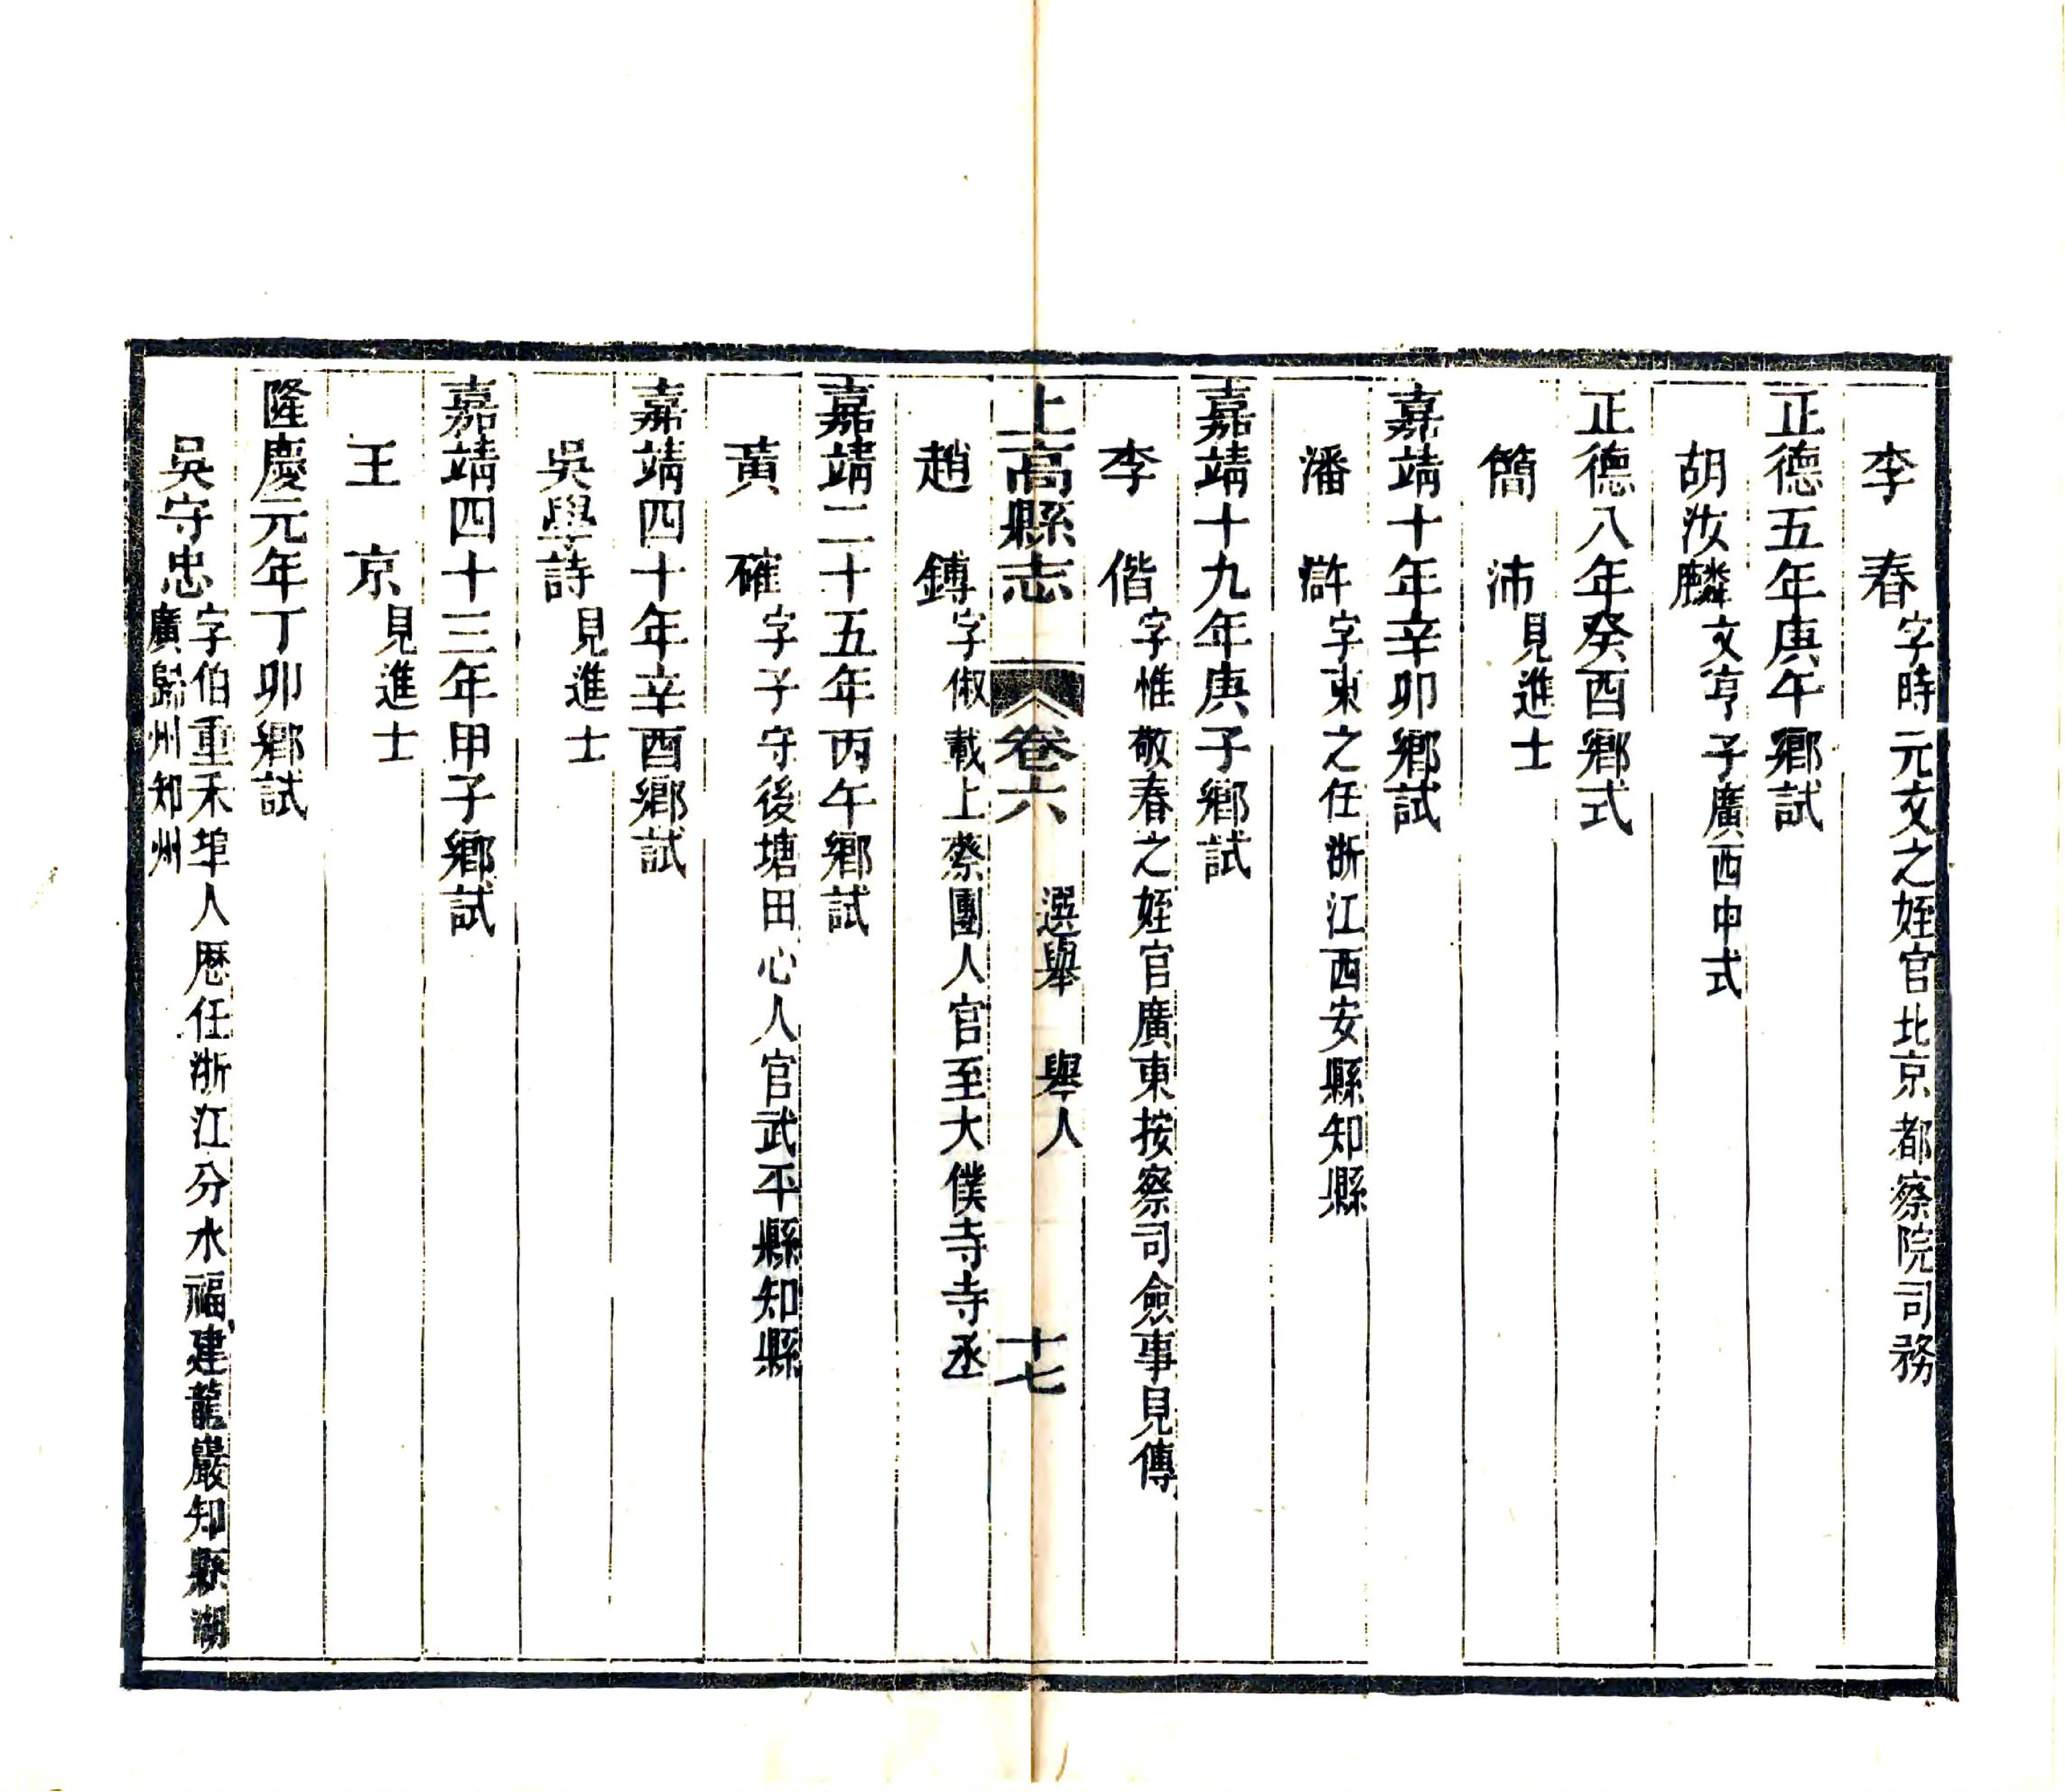 李　春字時元文之姪官北京都察院司務
正德五年庚午鄉試
胡汝麟文亨子廣西中式
正德八年癸酉鄉式
簡　沛見進士
嘉靖十年辛卯鄉試
潘　滸字東之任浙江西安縣知縣
嘉靖十九年庚子鄉試
李　偕字惟敬春之姪官廣東按察司僉事見傳
上高縣志　卷六　選舉　舉人　十七
趙　鏄字俶載上蔡團人官至大僕寺寺丞
嘉靖二十五年丙午鄉試
黃　確字子守後塘田心人官武平縣知縣
嘉靖四十年辛酉鄉試
吳學詩見進士
嘉靖四十三年甲子鄉試
王　京見進士
隆慶元年丁卯鄉試
吳守忠字伯重禾埠人歷任浙江分水福建龍巖知縣湖
廣歸州知州